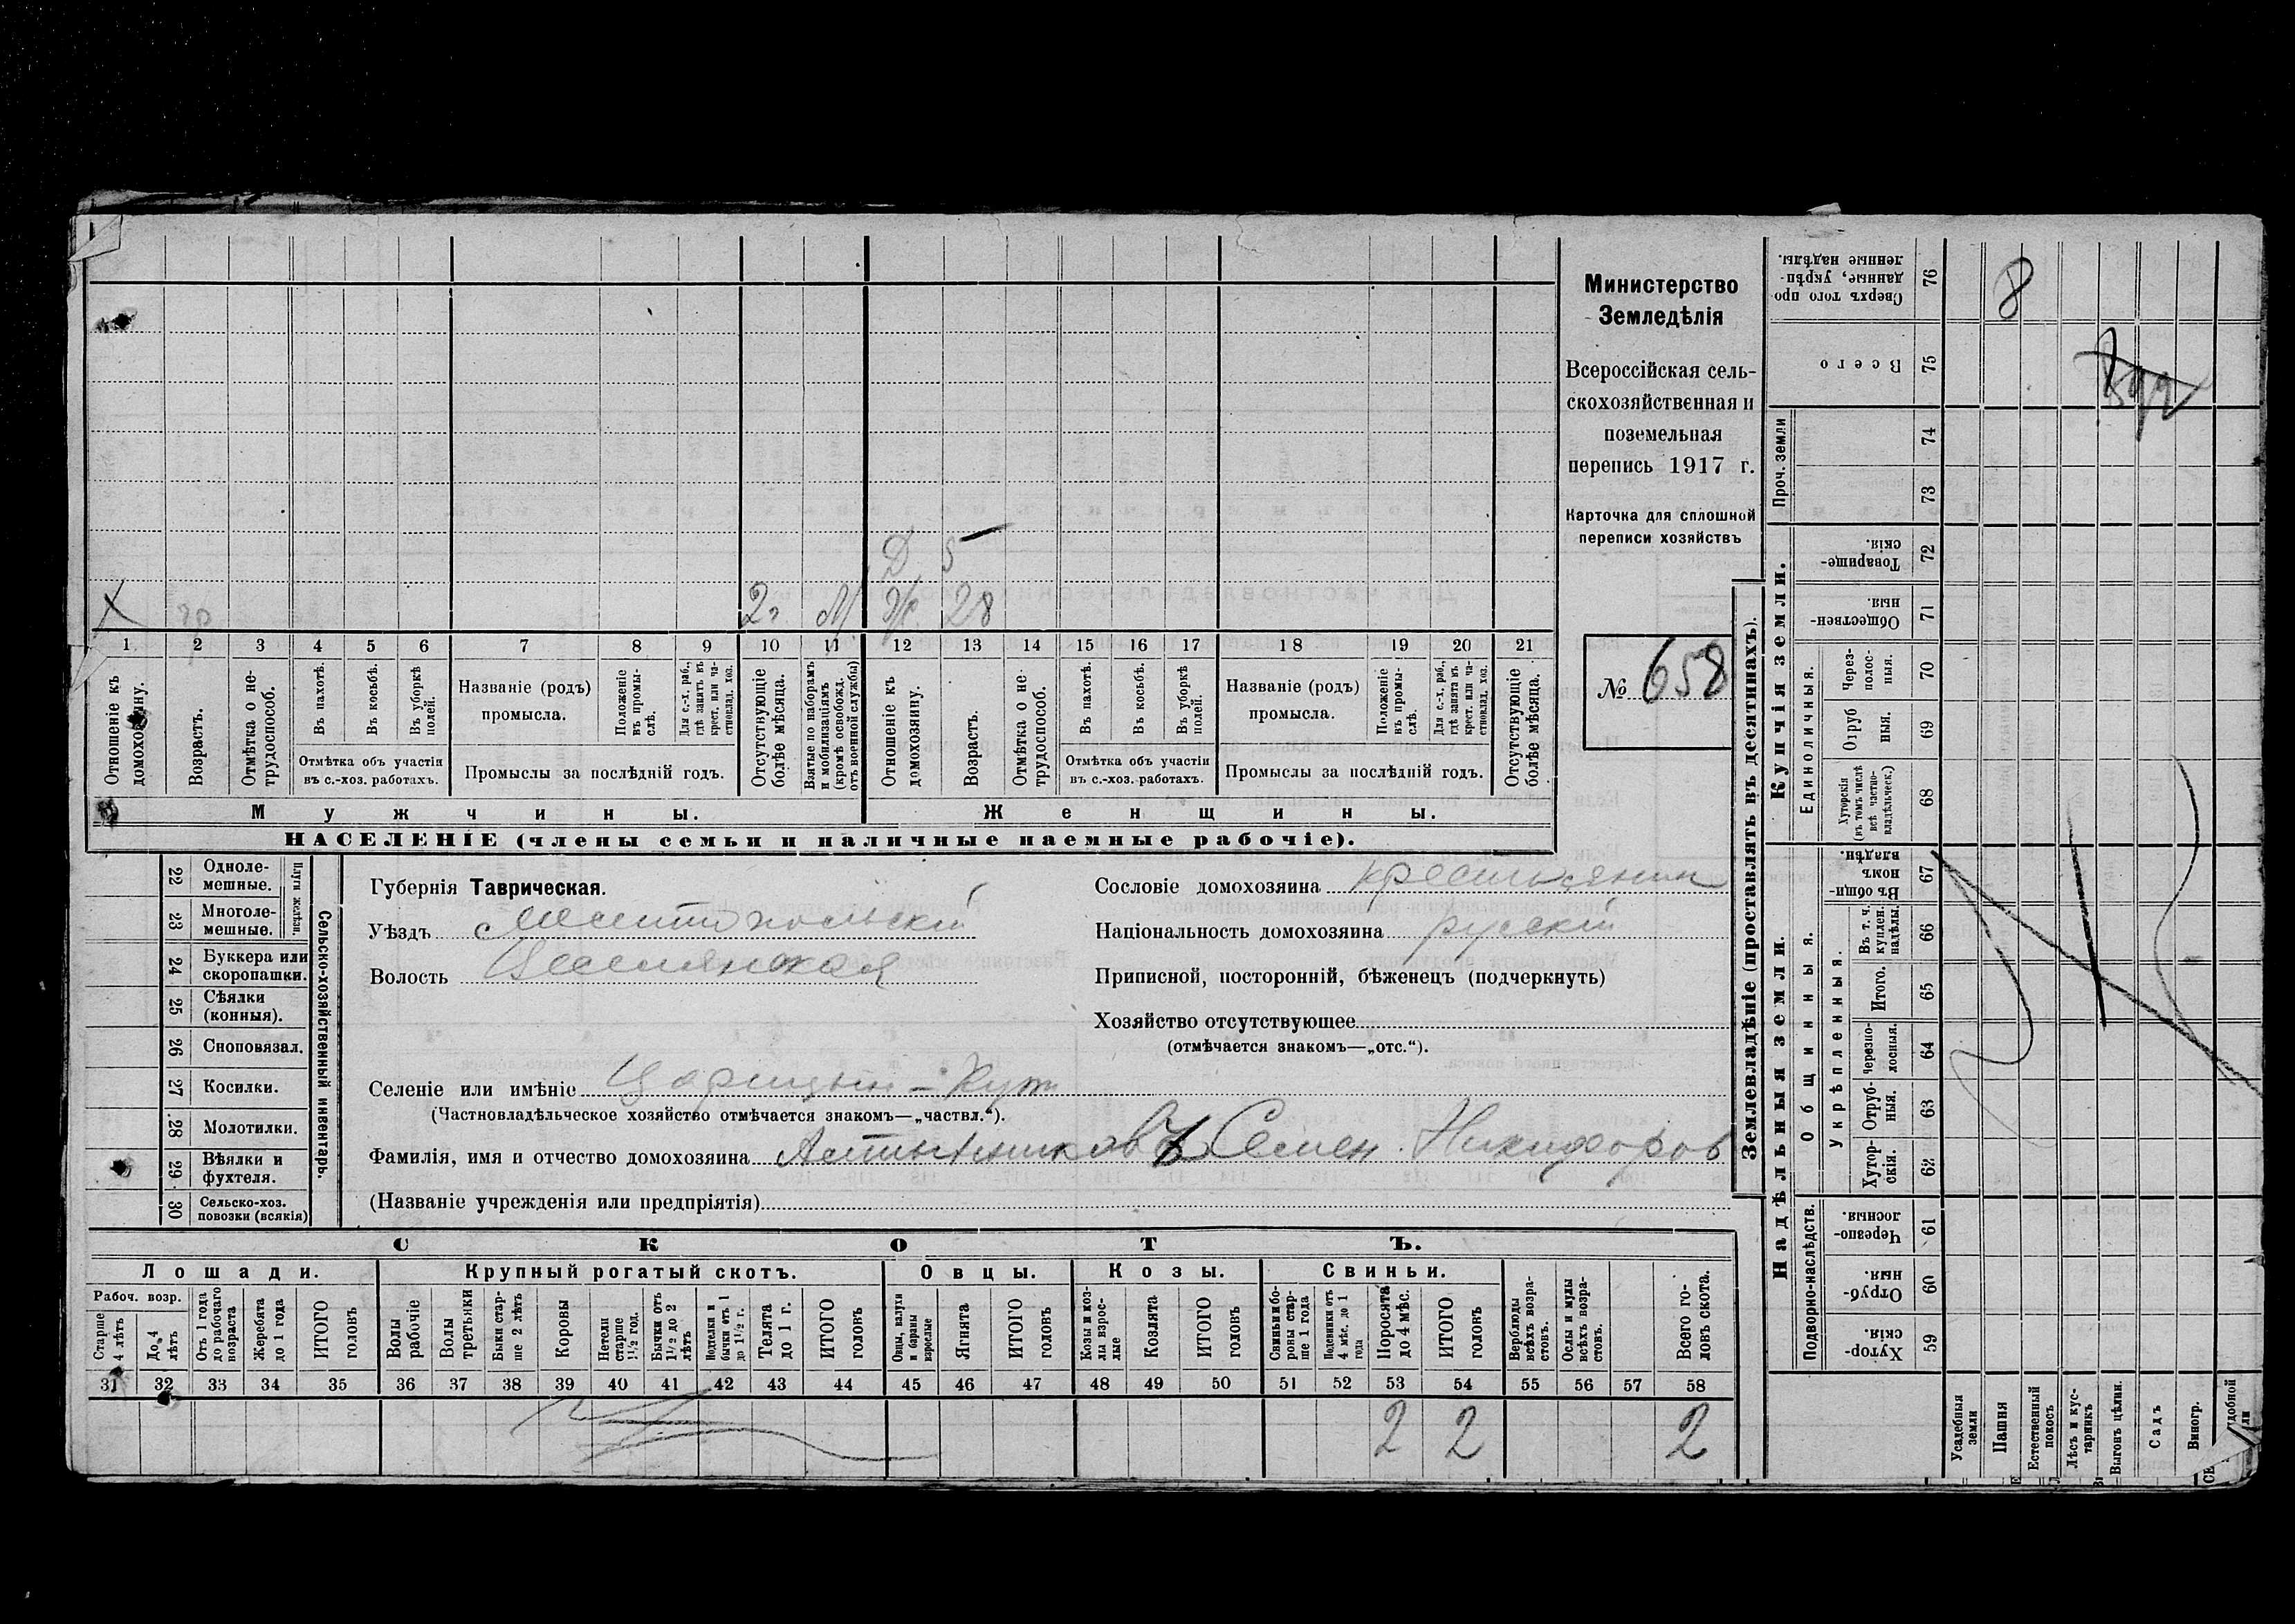 Министерство
Земледѣлія
Всероссійская сель-
скохозяйственная и
поземельная
перепись 1917 г.
Карточка для сплошной
переписи хозяйствъ
№ 658
Д 5
2г. М. Ж. 28
1 2 3 4 5 6 7 8 9 10 11 12 13 14 15 16 17 18 19 20 21
Отношеніе къ домохозяину.
Возрастъ.
Отмѣтка о не-трудоспособ.
Въ пахотѣ.
Въ косьбѣ.
Въ уборкѣ полей.
Отмѣтка объ участіи
въ с.-хоз. работахъ.
Названіе (родъ)
промысла.
Положеніе въ промы-слѣ.
Для с.-х. раб., гдѣ занятъ въ крест. или ча-стновлад. хоз.
Промыслы за послѣдній годъ.
Отсутствующіе болѣе мѣсяца.
Взятые по наборамъ и мобилизаціямъ (кромѣ освобожд. отъ военной службы)
Отношеніе къ домохозяину.
Возрастъ.
Отмѣтка о не-трудоспособ.
Въ пахотѣ.
Въ косьбѣ.
Въ уборкѣ полей.
Отмѣтка объ участіи
въ с.-хоз. работахъ.
Названіе (родъ)
промысла.
Положеніе въ промы-слѣ.
Для с.-х. раб., гдѣ занята въ крест. или ча-стновлад. хоз.
Промыслы за послѣдній годъ.
Отсутствующіе болѣе мѣсяца.
Мужчины. Женщины.
НАСЕЛЕНІЕ (члены семьи и наличные наемные рабочіе).
22 Одноле-мешные.
23 Многоле-мешные.
Плуги желѣзн.
24 Буккера или скоропашки.
25 Сѣялки (конныя).
26 Сноповязал.
27 Косилки.
28 Молотилки.
29 Вѣялки и фухтеля.
30 Сельско-хоз. повозки (всякія)
Сельско-хозяйственный инвентарь.
Губернія Таврическая.
Уѣздъ Мелитопольскій
Волость
Селеніе или имѣніе Царицын-Кут
(Частновладѣльческое хозяйство отмѣчается знакомъ—„частвл.“).
Фамилія, имя и отчество домохозяина Семен Никифоров
(Названіе учрежденія или предпріятія)
Сословіе домохозяина крестьянин
Національность домохозяина русскій
Приписной, посторонній, бѣженецъ (подчеркнуть)
Хозяйство отсутствующее
(отмѣчается знакомъ—„отс.“).
СКОТЪ.
Лошади. Крупный рогатый скотъ. Овцы. Козы. Свиньи.
Рабоч. возр.
Старше 4 лѣтъ
До 4 лѣтъ
Отъ 1 года до рабочаго возраста
Жеребята до 1 года
ИТОГО головъ
Волы рабочіе
Волы третьяки
Быки стар-ше 2 лѣтъ
Коровы
Нетели старше 1½ год.
Бычки отъ 1½ до 2 лѣтъ
бычки отъ 1 до 1½ г.
Телята до 1 г.
ИТОГО головъ
Овцы, валухи и бараны взрослые
Ягнята
ИТОГО головъ
Козы и коз-лы взрос-лые
Козлята
ИТОГО головъ
Свиньи и бо-ровы стар-ше 1 года
Подсвинки отъ 4 мѣс. до 1 года
Поросята до 4 мѣс.
ИТОГО головъ
Верблюды всѣхъ возра-стовъ.
Ослы и мулы всѣхъ возра-стовъ.
Всего го-ловъ скота.
31 32 33 34 35 36 37 38 39 40 41 42 43 44 45 46 47 48 49 50 51 52 53 54 55 56 57 58
2 2 2
Землевладѣніе (проставлять въ десятинахъ).
Надѣльныя земли. Купчія земли.
Проч. земли
Подворно-наслѣдств.
Общинныя.
Укрѣпленныя.
Единоличныя.
Сверхъ того про-данные, укрѣп-ленные надѣлы. 76
Всего 75
74
73
Товарище-скія. 72
Обществен-ныя. 71
Через-полос-ныя. 70
Отруб-ныя. 69
Хуторскія (въ томъ числѣ всѣ частно-владѣльческ.) 68
Въ общин-номъ владѣн. 67
Въ т. ч. куплен. надѣлы. 66
Итого. 65
Черезпо-лосныя. 64
Отруб-ныя. 63
Хутор-скія. 62
Черезпо-лосныя. 61
Отруб-ныя. 60
Хутор-скія. 59
8
Усадебныя земли
Пашня
Естественный покосъ
Лѣсъ и кус-тарникъ
Выгонъ цѣлин.
Садъ
Виногр.